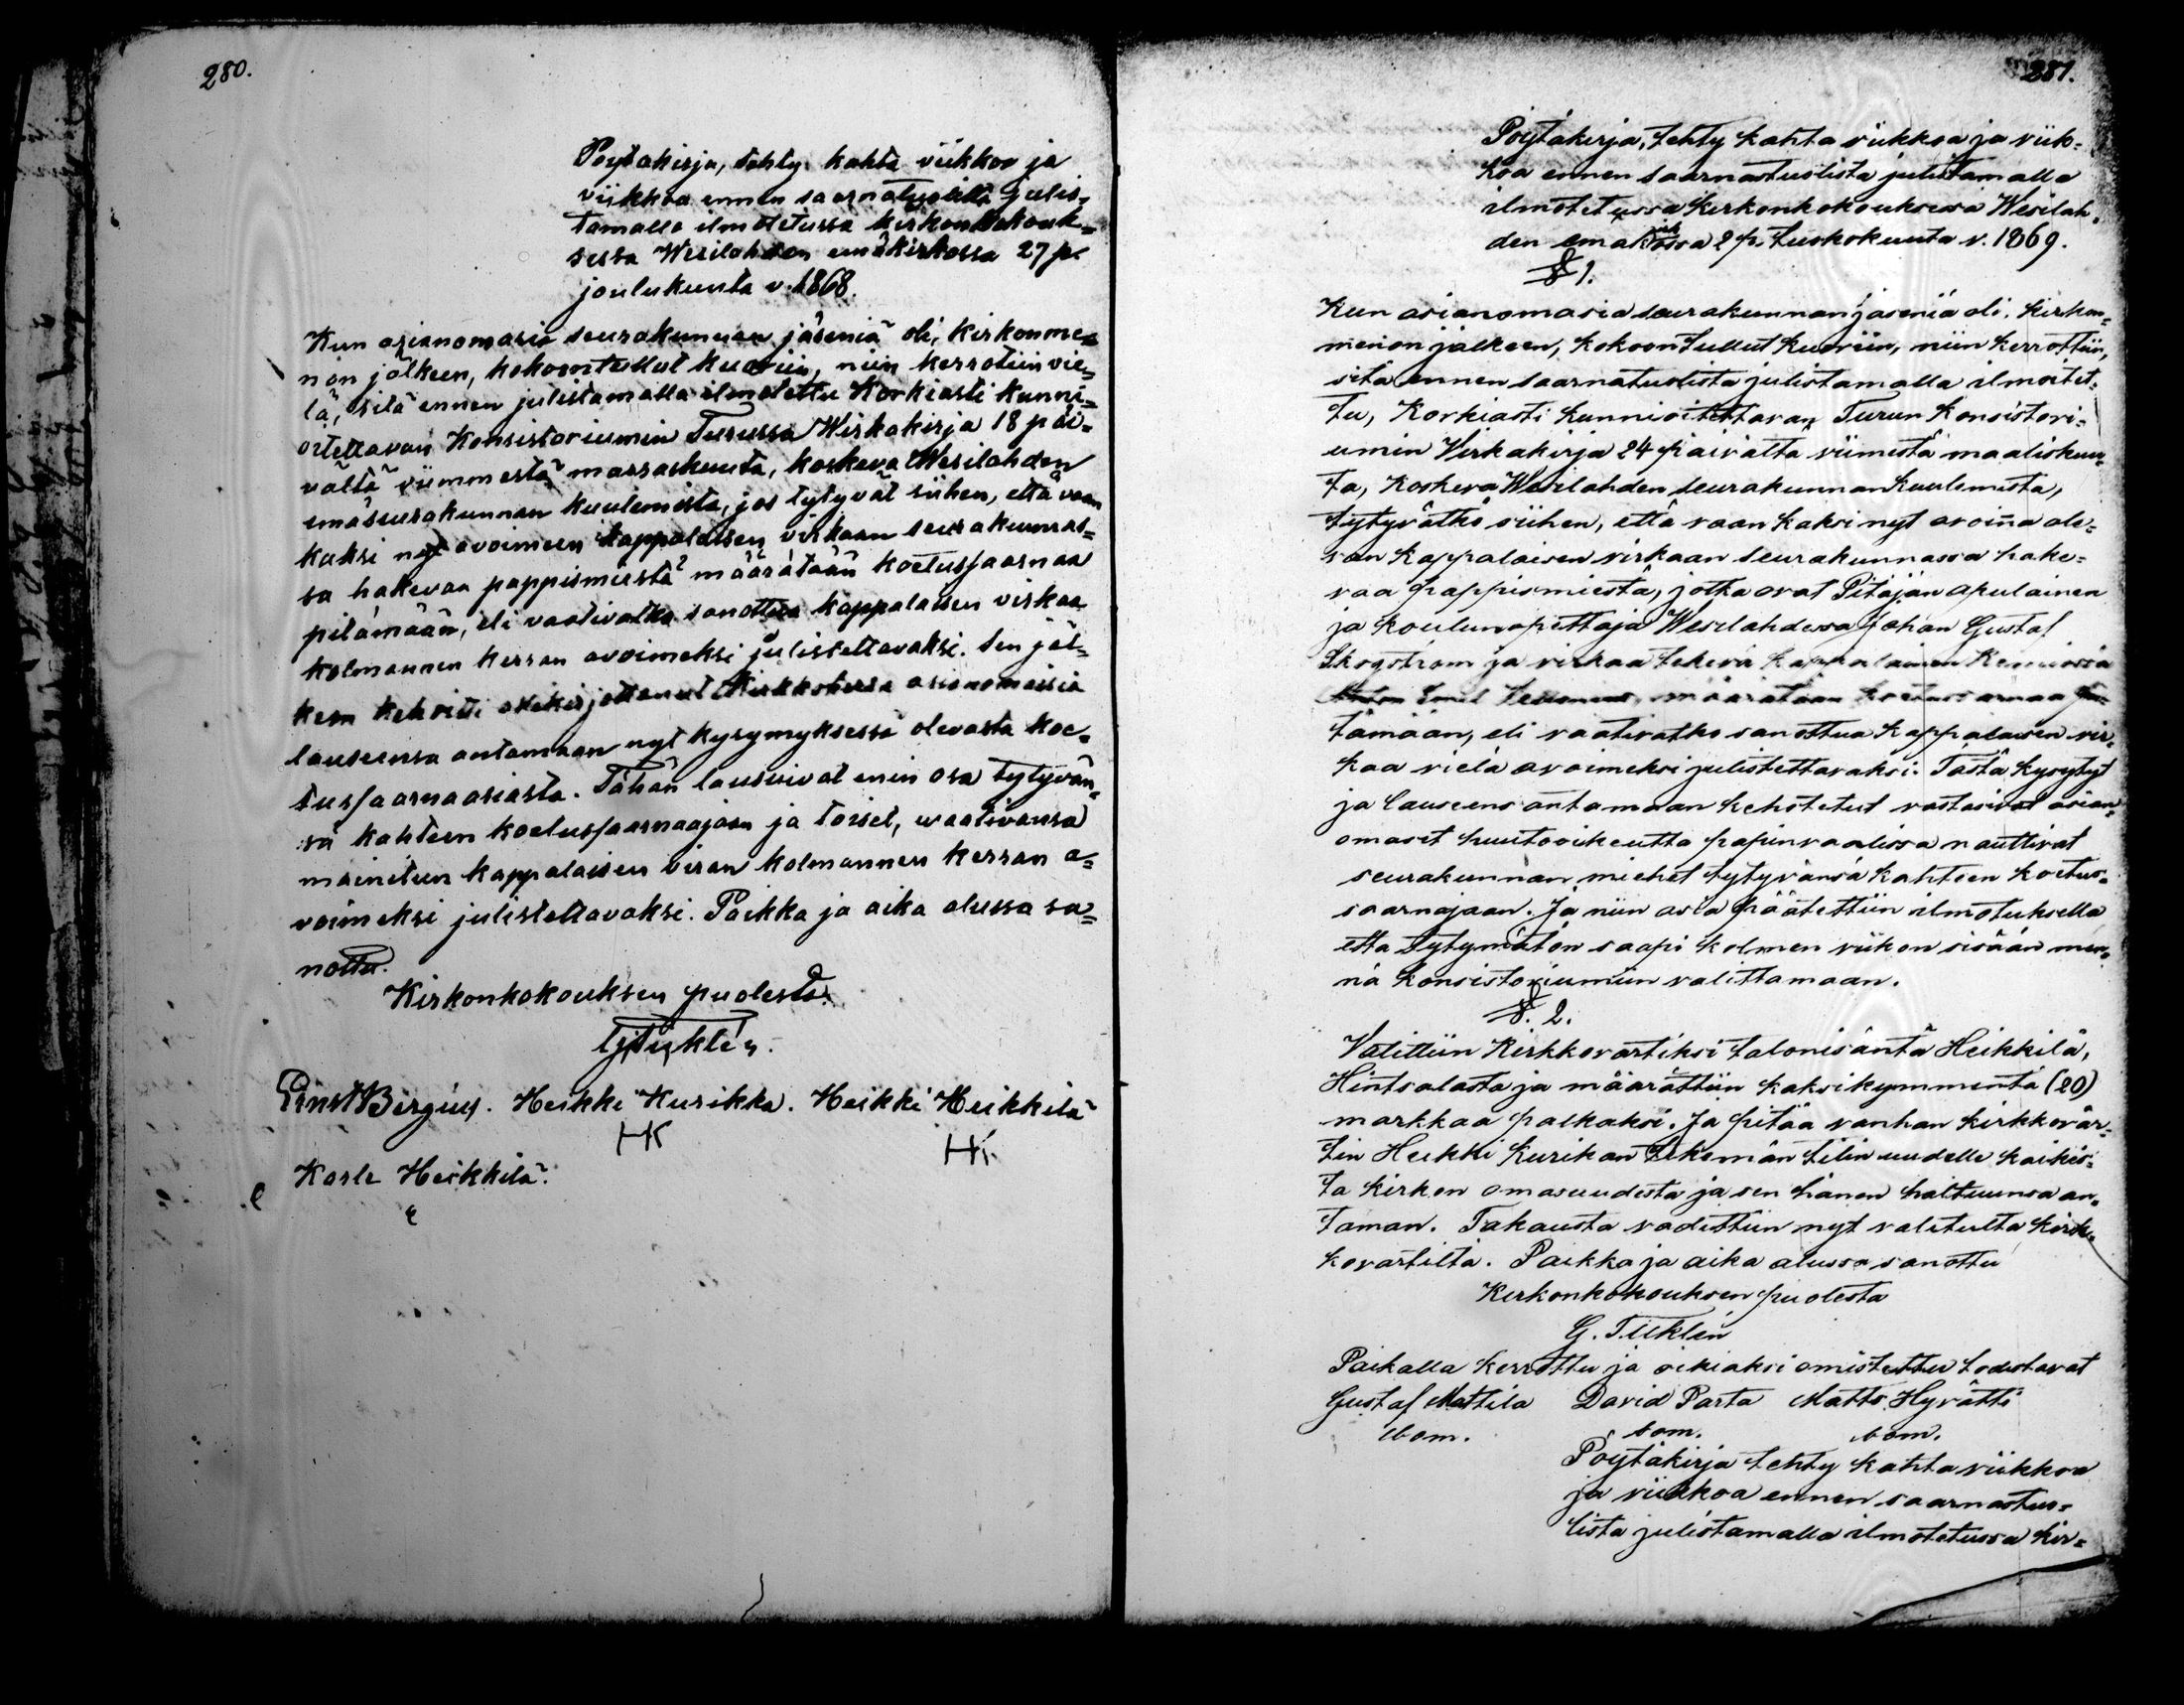 280.
Pöytäkirja, tehty kahta viikkoa ja
viikkoa ennen saarnatuolilta julis=
tamalla ilmotetussa kirkonkokouk=
sessa Wesilahden emäkirkossa 27 p.
joulukuuta v. 1868.
Kun asianomasia seurakunnan jäseniä oli, kirkonme=
non jälkeen, kokoontullut kuoriin, niin kerrotiin vie=
lä, sitä ennen julistamalla ilmotettu Korkiasti kunni=
oitettavan Konsistoriumin Turussa Wirkakirja 18 päi=
vältä viimmestä marraskuuta, koskeva Wesilahden
emäseurakunnan kuulemista, jos tytyvät siihen, että vaan
kaksi nyt avoimeen kappalaisen virkaan seurakunnas=
sa hakevaa pappismiestä määrätään koetussaarnaa
pitämään, eli vaativatko sanottua kappalaisen virkaa
kolmannen kerran avoimeksi julistettavaksi. Sen jäl=
keen kehoitti allekirjottanut Kirkkoherra asianomaisia
lauseensa antamaan nyt kysymyksessä olevasta koe=
tussaarnaasiasta. Tähän lausuivat enin osa tytyvän=
sä kahteen koetussaarnaajaan ja toiset, waativansa
mainitun kappalaisen viran kolmannen kerran a=
voimeksi julistettavaksi. Paikka ja aika alussa sa=
nottu.
Kirkonkokouksen puolesta.
Ernst Bergius. Heikki Kurikka. Heikki Heikkilä
HK HK
Karle Heikkilä.
281.
Pöytäkirja, tehty kahta viikkoa ja viik=
koa ennen saarnastuolista julistamalla
ilmotetussa Kirkonkokouksessa Wesilah=
den emäkirkossa 2 p. Tuokokuuta v. 1869.
§ 1.
Kun asianomasia seurakunnan jäseniä oli, Kirkon=
menon jälkeen, kokoontullut kuoriin, niin kerrottiin,
sitä ennen saarnatuolista julistamalla ilmoitet=
tu, Korkiasti kunnioitettavan Turun Konsistori=
umin Virkakirja 24 päivältä viimestä maaliskuu=
ta, koskeva Wesilahden seurakunnan kuulemista,
tytyvätkö siihen, että vaan kaksi nyt avoinna ole=
van kappalaisen virkaan seurakunnassa hake=
vaa pappismiestä, jotka ovat Pitäjän apulainen
ja koulunopettaja Wesilahdessa Johan Gustaf
Skogström ja virkaa tekevä kappalainen
Emil määrätään koetussarnaa pi=
tämään, eli vaativatko sanottua kappalaisen vir=
kaa vielä avoimeksi julistettavaksi. Tästä kysytyt
ja lauseens antamaan kehotetut vastasivat asian=
omaset puutooikeutta papinvaalissa nauttivat
seurakunnan miehet tytyvänsä kahteen koetus=
saarnajaan. Ja niin asia päätettiin ilmotuksella
että tytymätön saapi kolmen viikon sisään men=
nä konsistoriumiin valittamaan.
§. 2.
Valittiin Kirkkovartiksi talonisäntä Heikkilä,
Hintsalasta ja määrättiin kaksikymmentä (20)
markkaa palkaksi. Ja pitää vanhan kirkkovär=
tin Heikki Kurikan tekemän tilin uudelle kaikis=
ta kirkon omasuudesta ja sen hänen haltuunsa an=
taman. Takausta vadittiin nyt valitulta kirk=
kovärtiltä. Paikka ja aika alussa sanottu
Kirkonkokouksen puolesta
G. Tiiklén
Paikalla kerrottu ja oikiaksi omistettu todistavat
Gustaf Mattila David Parta Matts Hyrätti
bom. bom. bom.
Pöytäkirja tehty kahta viikkoa
ja viikkoa ennen saarnastuo=
lista julistamalla ilmotetussa kir=